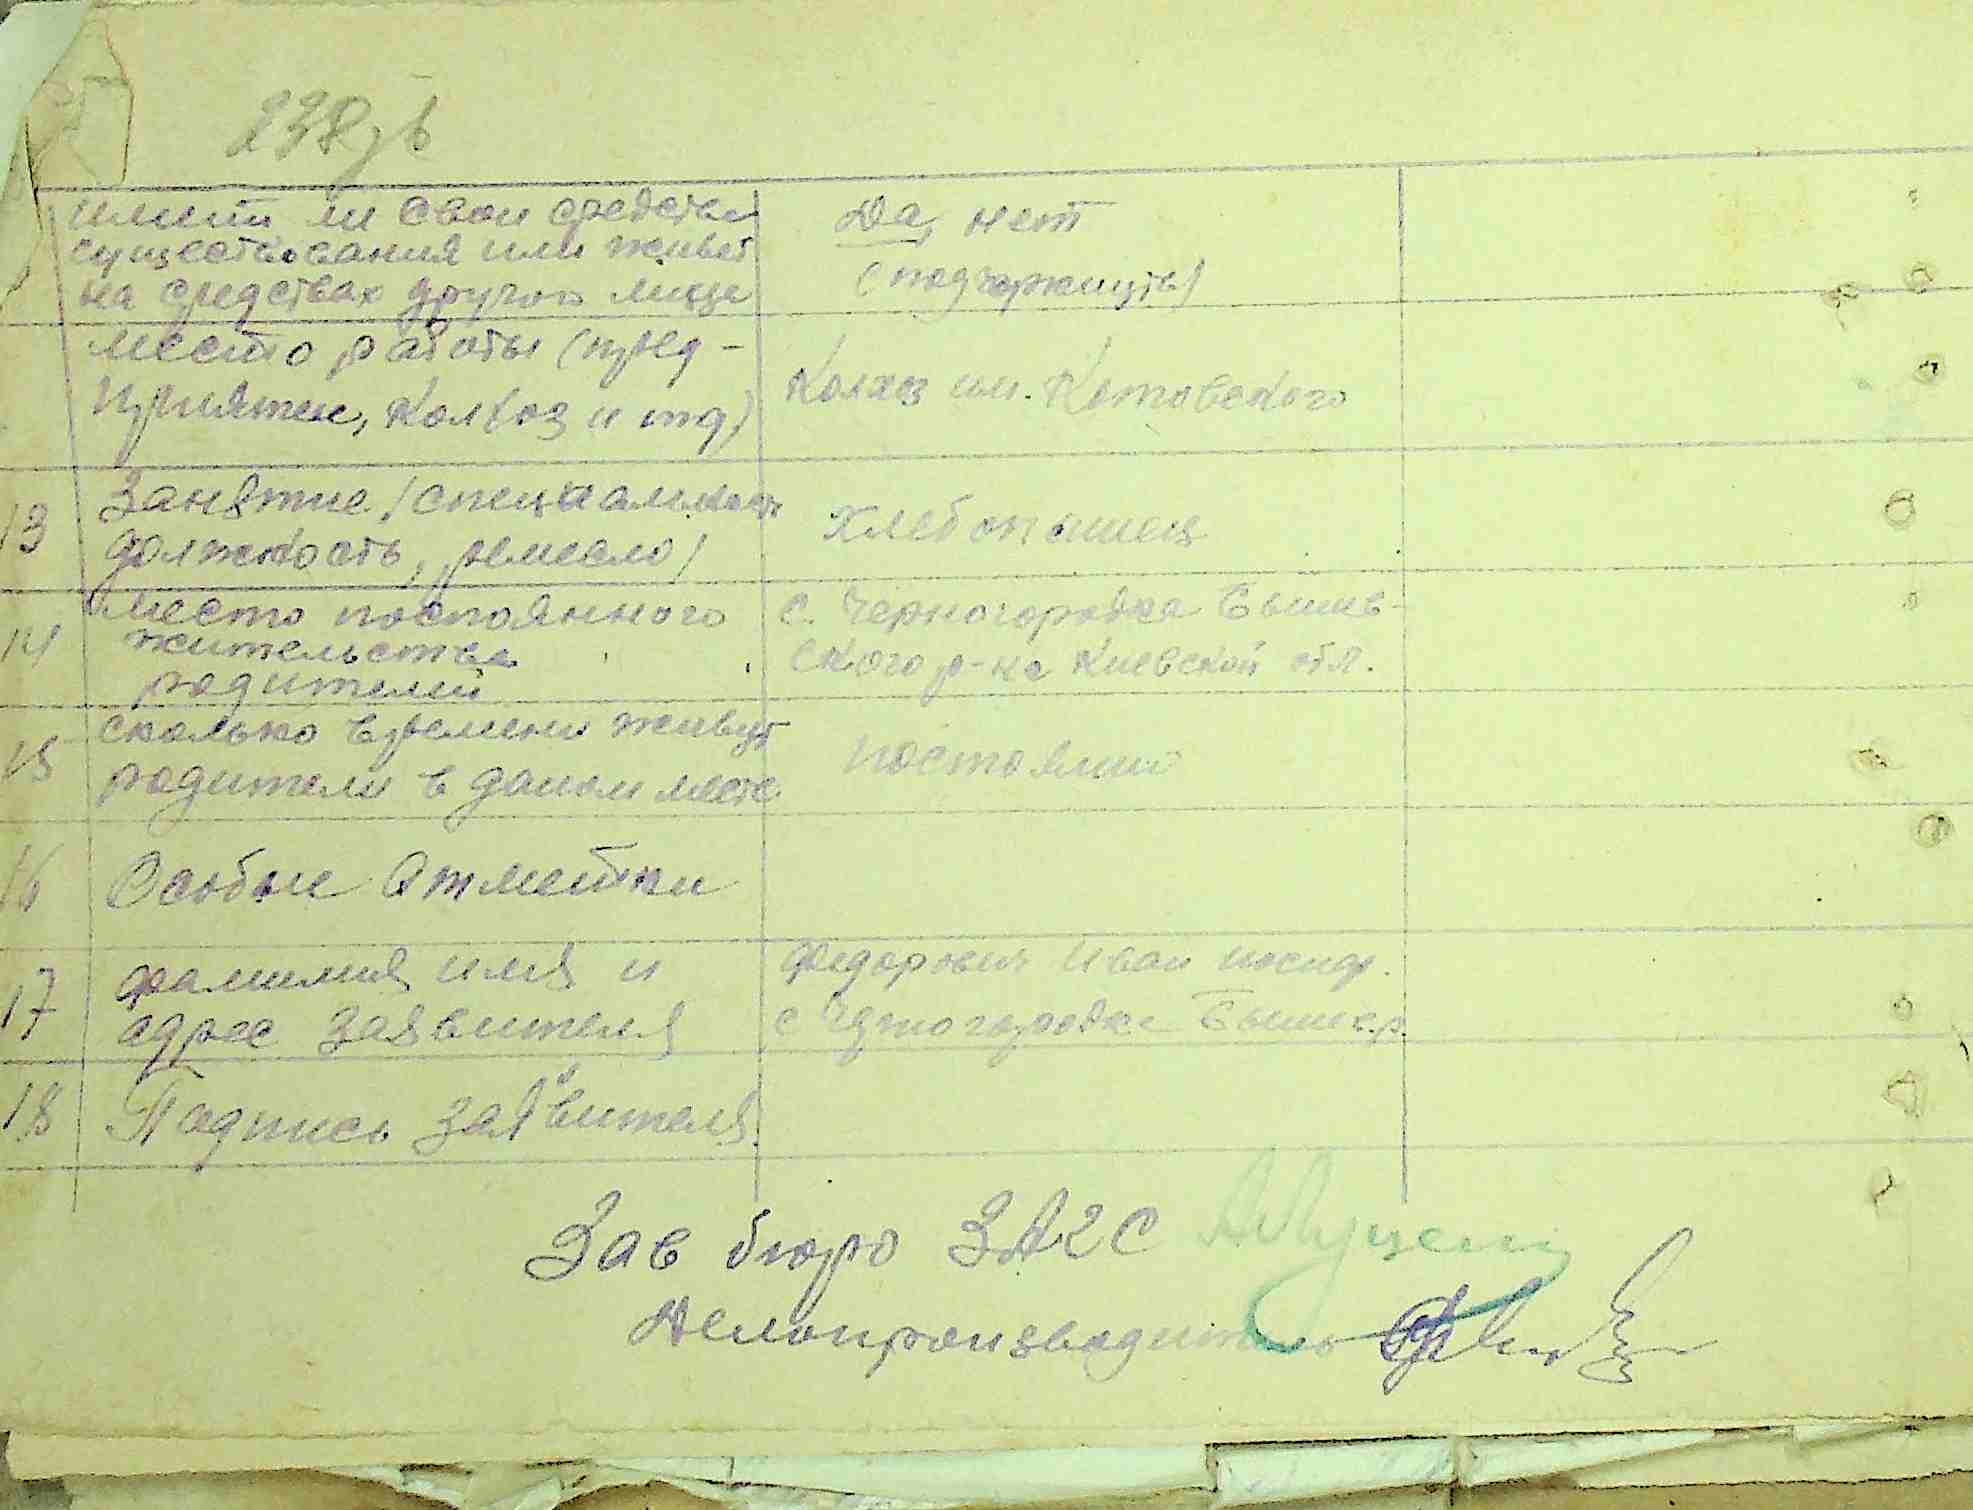 238зв
имеит ли свои средства
существования или живет
на средствах другого лица
Да, нет
(подчеркнуть)
место работы (пред-
приятие, колхоз и тд)
Колхоз им. Котовского
13
Занятие (специальность
должность, ремесло)
Хлебопашец
14
место постоянного
жительства
родителей
с. Черногородка Бышев-
ского р-на Киевской обл.
15
сколько времени живут
родители в даном месте
постоянно
16
Особые отметки
17
фамилия имя и
адрес заявителя
Федорович Иван иосиф.
с Черногородка Бышев.р.
18
Подпись заявителя
Зав бюро ЗАГС
Делопроизводитель